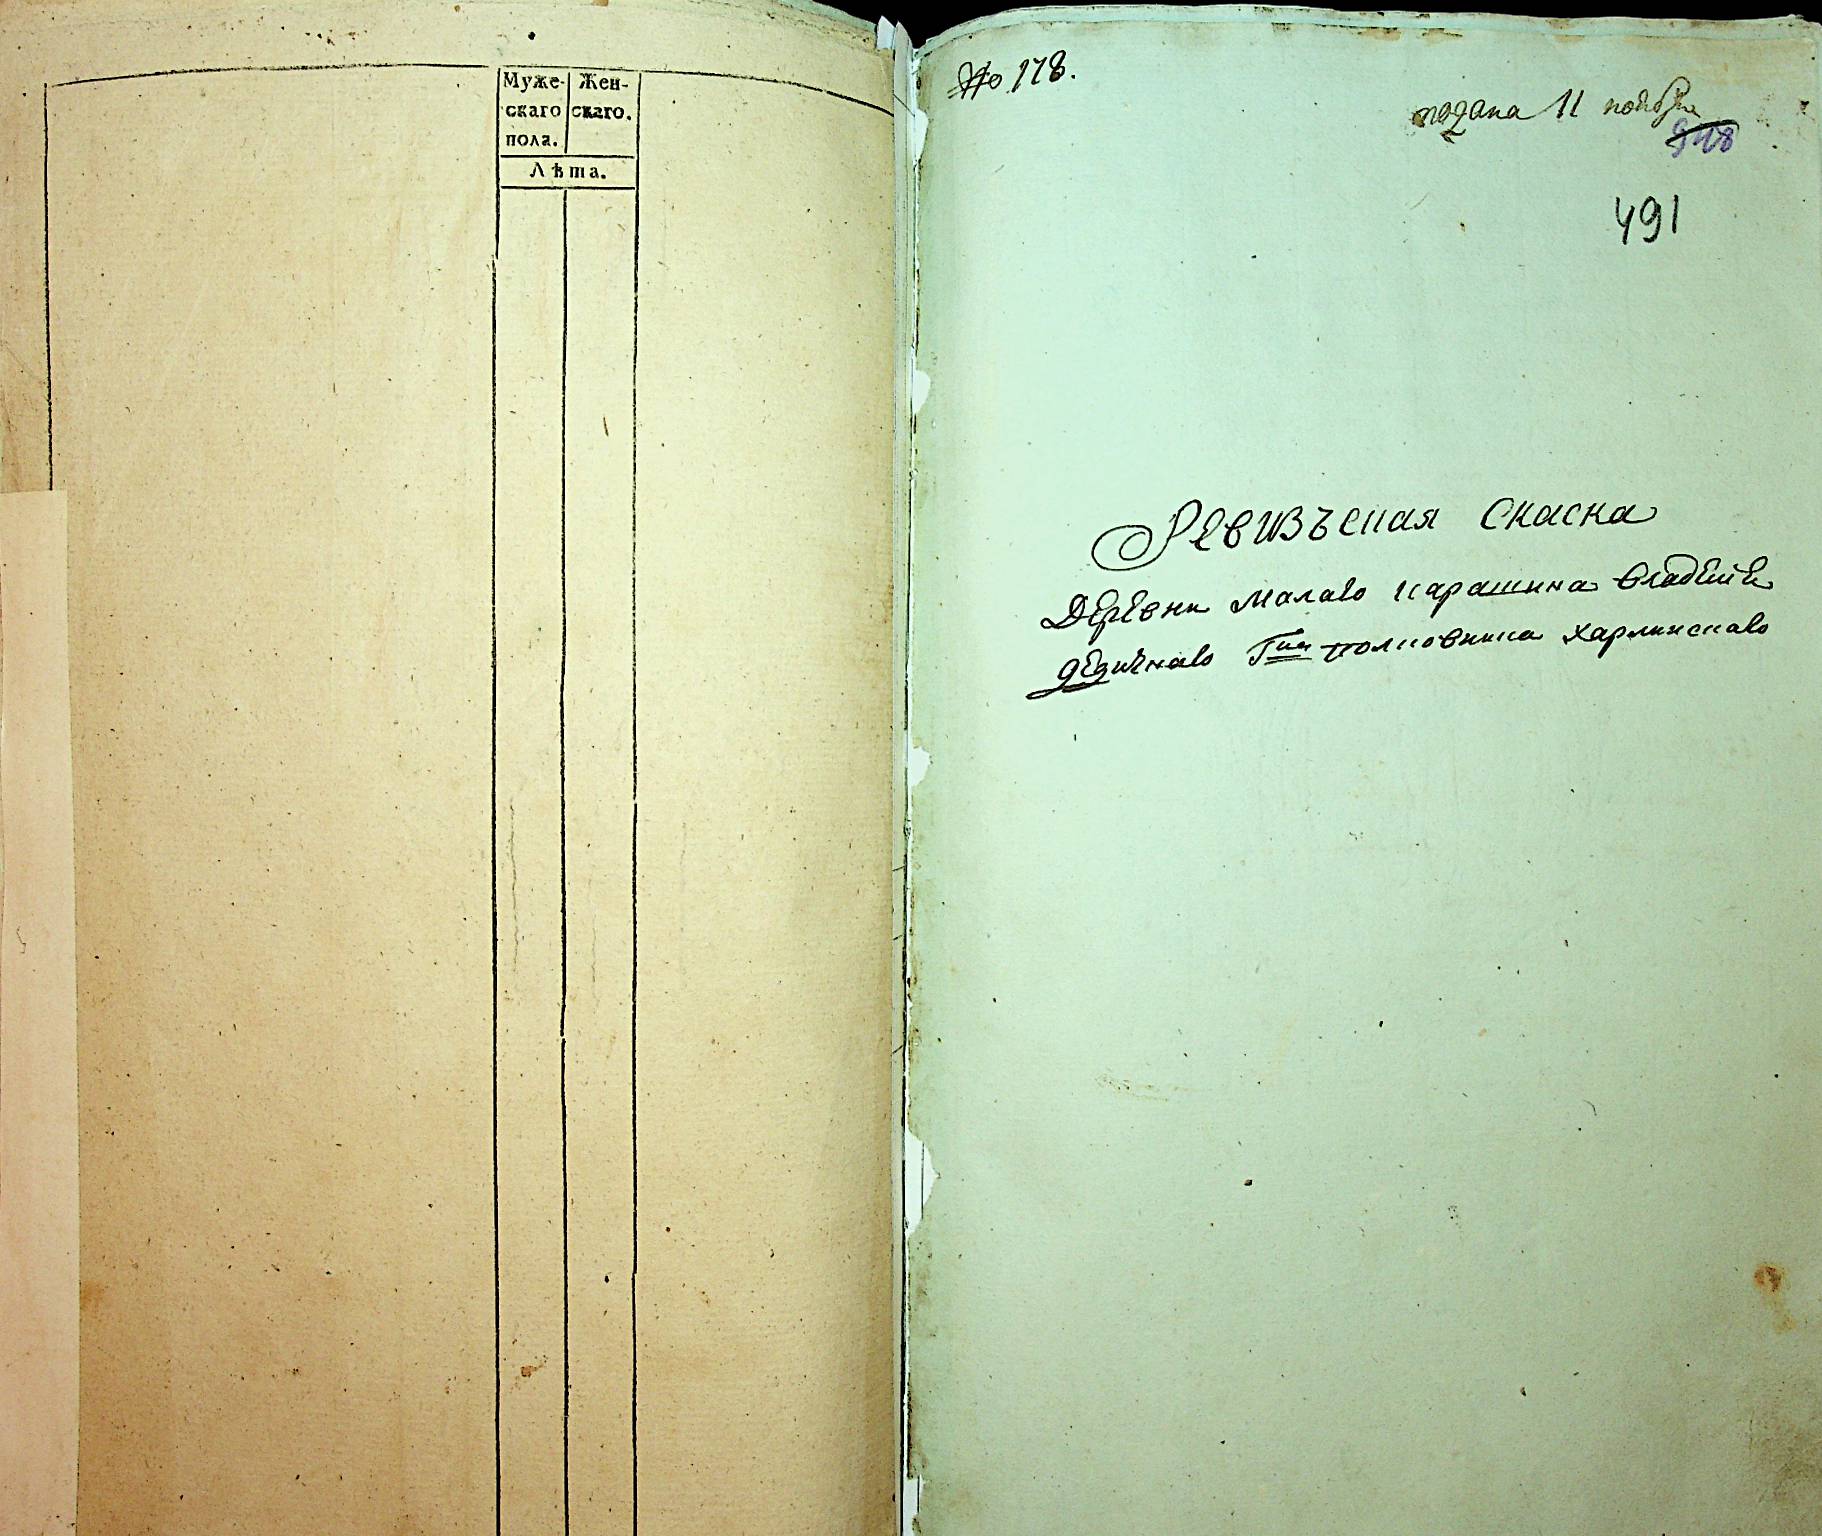 Муже-
скаго
пола.
Жен-
скаго.
Лѣта.
№ 178.
подана 11 ноября
948
491
Ревизъская скаска
Деревни Малаго Карашина владения
дедичнаго Гна полковника Харлинскаго